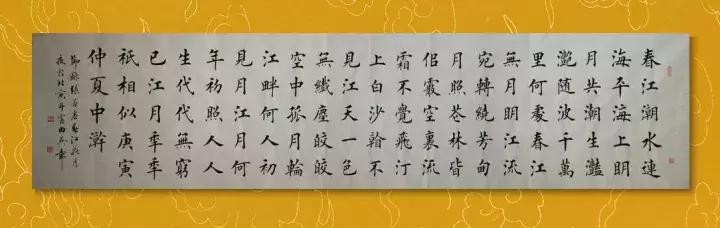 春江潮水連
海平海上明
月共潮生灩
灩随波千萬
里何處春江
無月明江流
宛轉繞芳甸
月照花林皆
佀霰空裏流
霜不覺飛汀
上白沙看不
見江天一色
無纖塵皎皎
空中孤月輪
江畔何人初
見月江月何
年初照人人
生代代無窮
已江月秊秊
祇相似庚寅
仲夏中澣
節錄張若虛春江花月
夜於北京